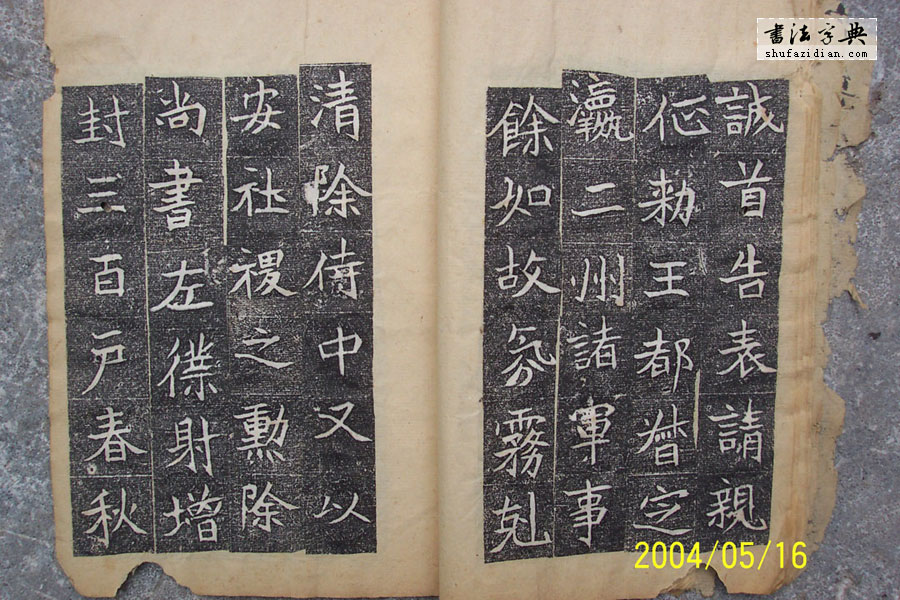 書法字典
shufazidian.com
誠首告表請親
伭勑王都督定
瀛二州諸軍事
餘如故氛霧剋
清除侍中又以
安社稷之勲除
尚書左僕射增
封三百戸春秋
2004/05/16